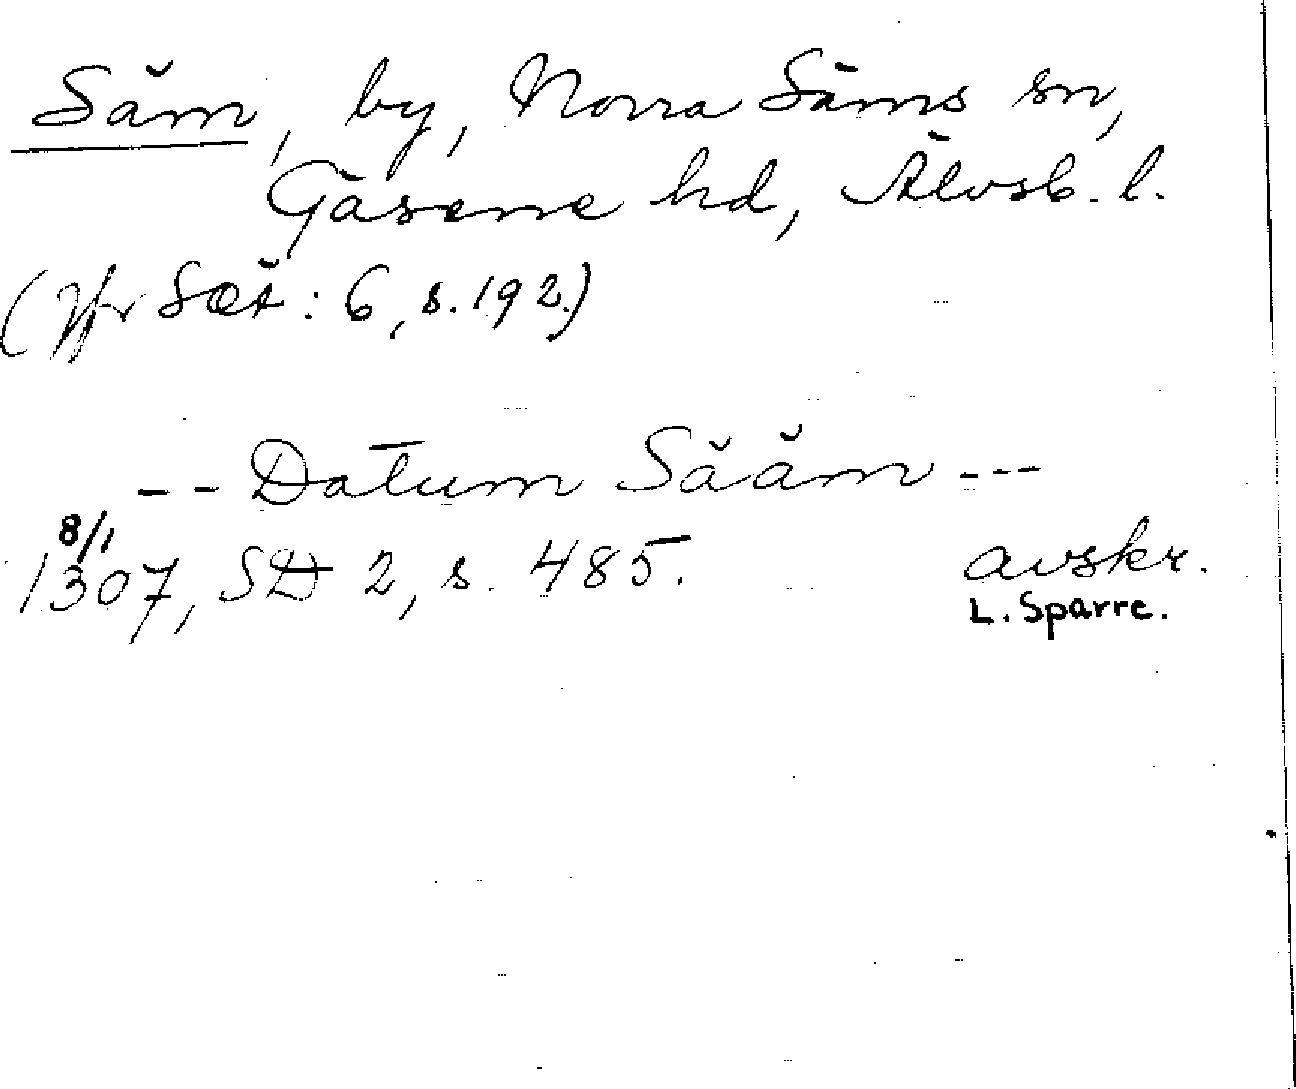 Säm, by, Norra Säms sn,
Gäsene hd, Älvsb. l.
(Jfr SOÄ: 6, s. 192.)
-- Datum Sääm ---
8/1
1307, SD 2, s. 485.
avskr.
L. Sparre.